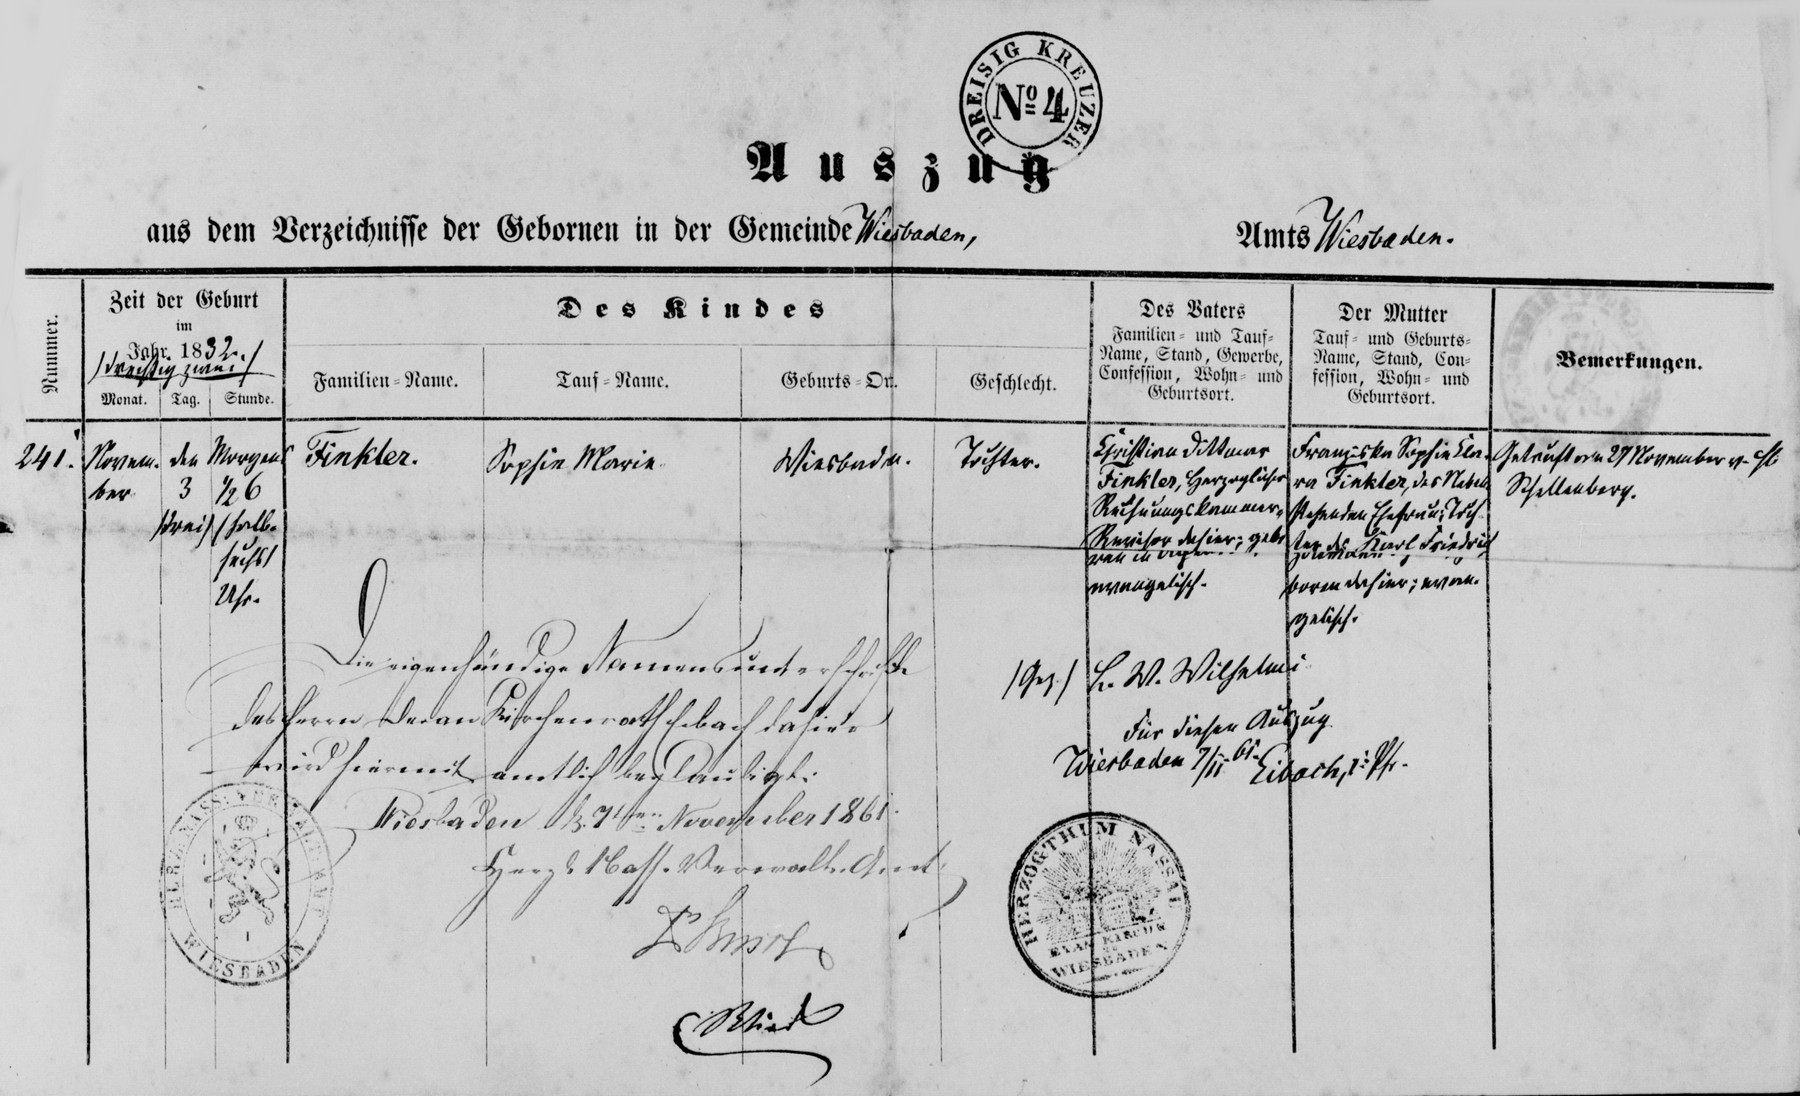 DREISIG KREUZER
No 4
Auszug
aus dem Verzeichnisse der Gebornen in der Gemeinde Wiesbaden,
Amts Wiesbaden.
Nummer.
Zeit der Geburt
im
Jahr 1832.
/dreißig zwei/
Monat. Tag. Stunde.
Des Kindes
Familien-Name. Tauf-Name. Geburts-Ort. Geschlecht.
Des Vaters
Familien- und Tauf-
Name, Stand, Gewerbe,
Confession, Wohn- und
Geburtsort.
Der Mutter
Tauf- und Geburts-
Name, Stand, Con-
fession, Wohn- und
Geburtsort.
Bemerkungen.
241.
Novem-
ber
den
3
/drei/
Morgens
1/2 6
/halb
sechs/
Uhr.
Finkler.
Sophie Marie
Wiesbaden.
Tochter.
Christian Dittmar
Finkler, Herzoglicher
Rechnungskammer-
Revisor dahier; gebo
ren in
evangelisch.
Franziska Sophie Kla-
ra Finkler, des Neben-
stehenden Ehefrau, Toch-
ter des Karl Friedrich
boren dahier; evan-
gelisch.
Getauft am 27 November v.
Schellenberg.
/Gez./ L. W. Wilhelmi
Für diesen Auszug
Wiesbaden 7/11. 61. Eibach, Pfr.
Die eigenhändige Namensunterschrift
des Herrn Decan Kirchenrath Eibach dahier
wird hiermit amtlich beglaubigt.
Wiesbaden d. 7ten November 1861.
Herzgl. Nass. Verwalt. Amt
HERZ. NASS. VERWALT. AMT
WIESBADEN
HERZOGTHUM NASSAU
EVAN. KIRCHE
ZU
WIESBADEN